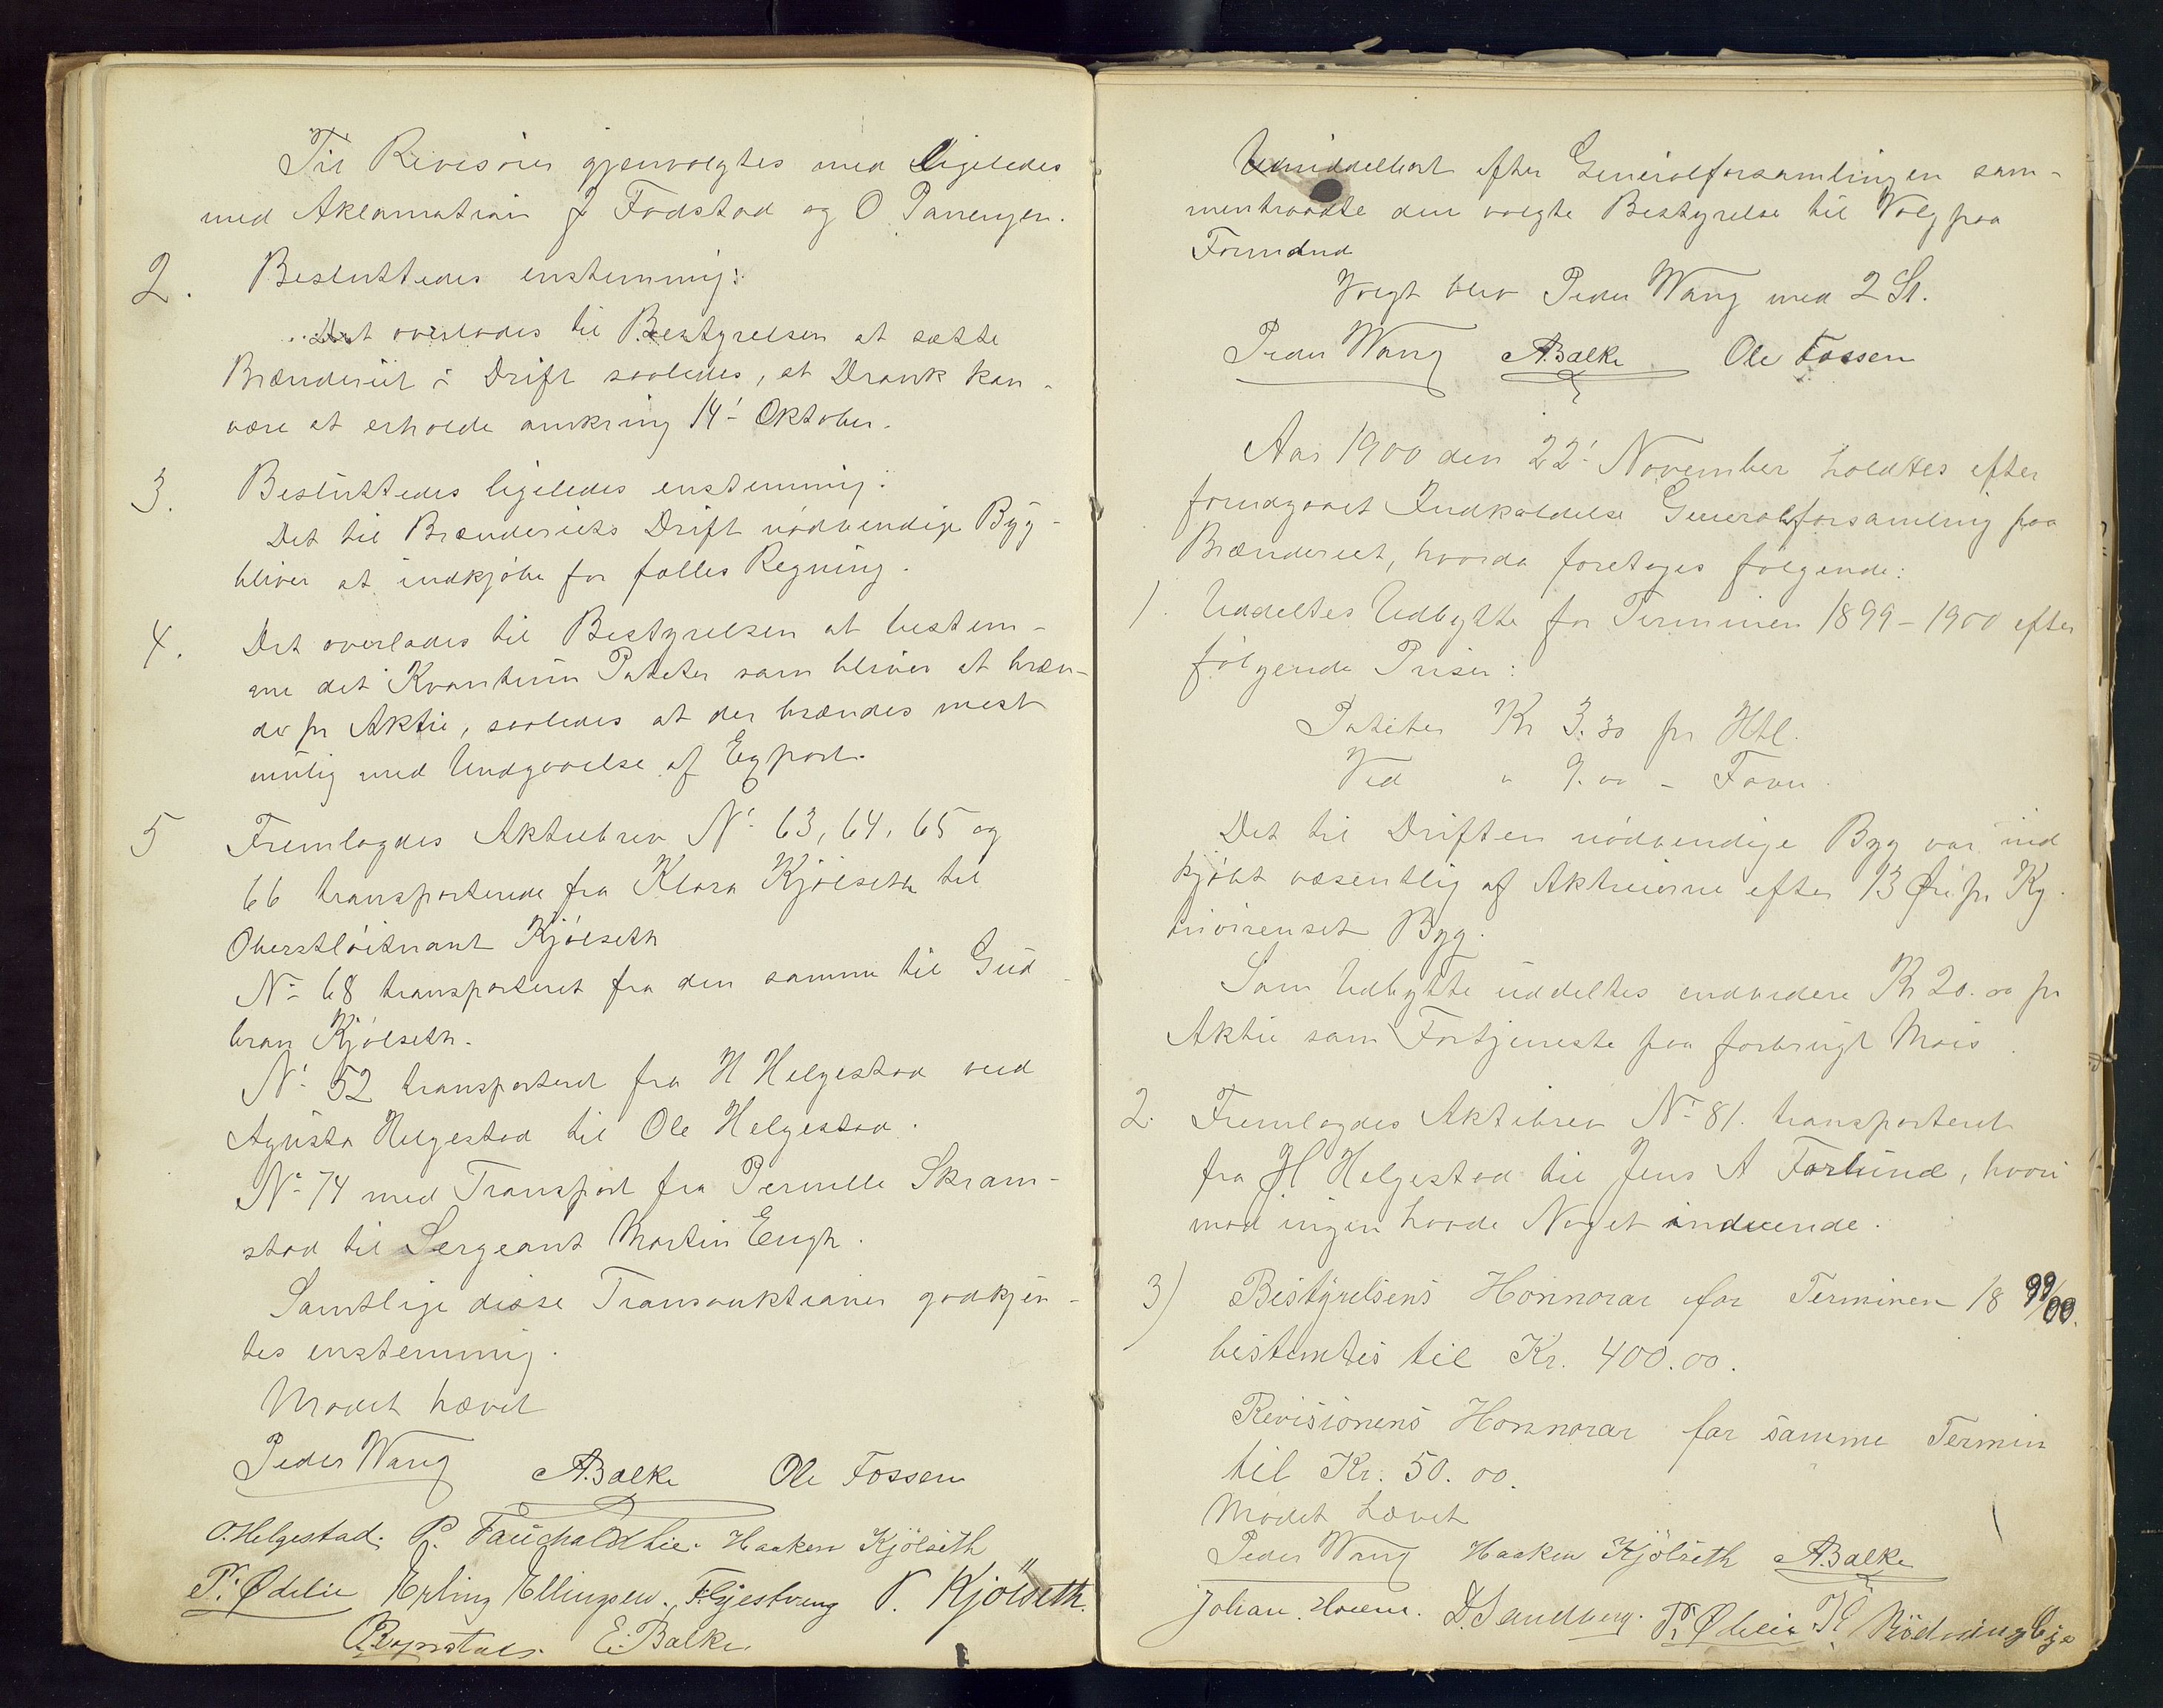 Til Revisorer gjenvalgtes med ligeledes
med Aklamation J Fodstad og O Panengen.
2. Besluttedes enstemmig:
Det overlodes til Bestyrelsen at sætte
Brænderiet i Drift saaledes, at Drank kan
være at erholde omkring 14' Oktober.
3. Besluttedes ligeledes enstemmig:
Det til Brænderiets Drift nödvendige Byg
bliver at indkjöbe for fælles Regning.
4. Det overlades til Bestyrelsen at bestem-
me det Kvantum Poteter som bliver at bræn-
de pr Aktie, saaledes at der brændes mest
mulig med Undgaaelse af Export.
5 Fremlagdes Aktiebrev No 63, 64, 65 og
66 transporterede fra Klara Kjölseth til
Oberstlöitnant Kjölseth
No 68 transporteret fra den samme til Gud-
bran Kjölseth.
No 52 transporteret fra H Helgestad ved
Agusta Helgestad til Ole Helgestad.
No 74 med Transport fra Pernille Skram-
stad til Sergeant Martin Engh.
Samtlige disse Transauktioner godkjen-
tes enstemmig.
Mödet hævet
Peder Wang A.Balke Ole Fossen
O.Helgestad. P. Fauchaldlie. Haaken Kjölseth
P. Ödelie Erling Ellingsen. F. Gjestvang P. Kjölseth.
E. Balke.
Umiddelbart efter Generalforsamlingen sam-
mentraadte den valgte Bestyrelse til Valg paa
Formand
Valgt blev Peder Wang med 2 St.
Peder Wang A.Balke Ole Fossen
Aar 1900 den 22' November holdtes efter
forudgaaet Indkaldelse Generalforsamling paa
Brænderiet, hvorda foretoges fölgende:
1. Uddeltes Udbytte for Terminen 1899-1900 efter
fölgende Priser:
Poteter Kr 3.30 pr Htl.
Ved " 9.00 - Favn.
Det til Driften nödvendige Byg var ind
kjöbt væsentlig af Aktieierne efter 13 Øre pr Kg.
trivirenset Byg.
Som Udbytte uddeltes endvidere Kr 20.00 pr
Aktie som Fortjeneste paa forbrugt Mais.
2. Fremlagdes Aktiebrev No 81. transporteret
fra H Helgestad til Jens A Forlund, hvori
mod ingen havde Noget indvende.
3) Bestyrelsens Honnorar for Terminen 18 99/00.
bestemtes til Kr. 400.00.
Revisionens Honnorar for samme Termin
til Kr. 50.00.
Mödet hævet
Peder Wang Haaken Kjölseth A.Balke
Johan Horne. D. Sandberg. P. Ödelie